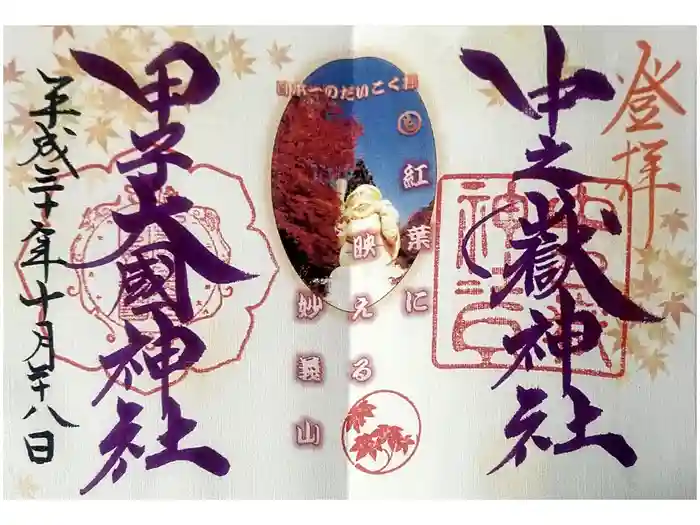 登拝
中之嶽神社
日本一のだいこく様
紅葉に
映える
妙義山
甲子大國神社
平成三十年十月廿八日